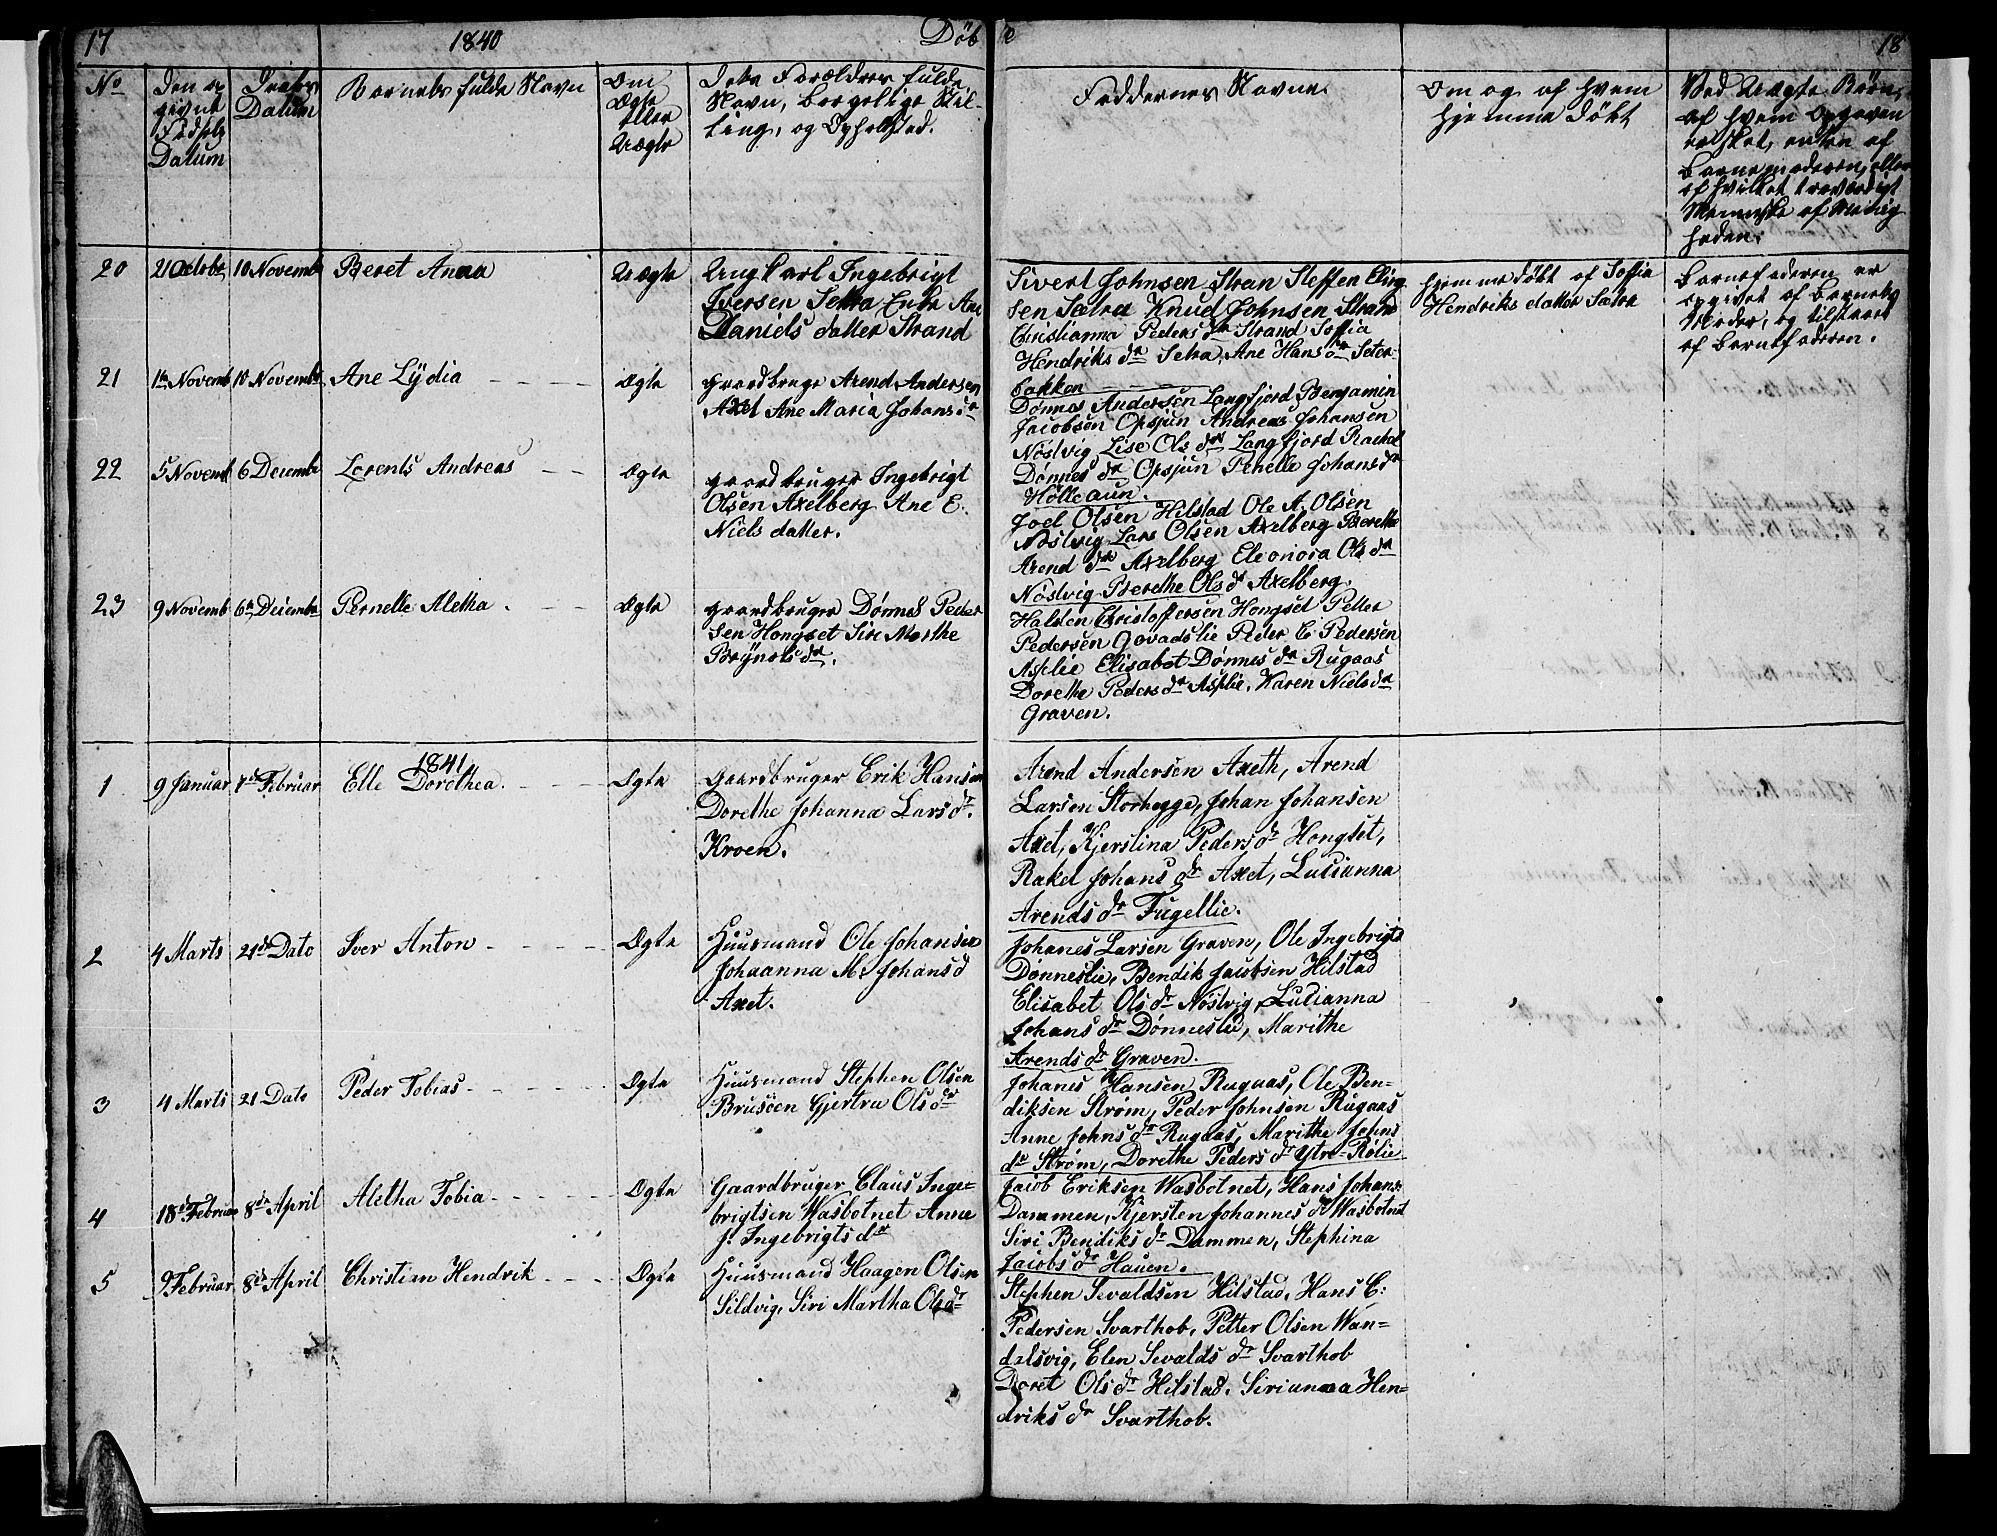 17
1840
Döb
e
18
No
Den an
givne
Födsels
Datum
Daabs
Datum
Barnets fulde Navn
Om
Ægte
eller
Uægte
Dets Forældres fulde
Navn, borgelige Stil-
ling, og Opholsted.
Faddernes Navne.
Om og af hvem
hjemme döbt
Ved Uægte Börn,
af hvem Opgaven
er sket, enten af
barnemoderen, eller
af hvilket troværdigt
Menneske af Menig
heden.
20
21 October
10 Novemb
Beret Anna
Uægte
Ung Karl Ingebrigt
Iversen Setra Enke Ane
Daniels datter Strand
Sivert Johnsen Stran Steffen Eling
sen Satra Knud Johnsen Strand
Christianna Peders dr Strand Soffia
Hendriks dr Setra, Ane Hans dr Seter-
bakken
hjemme döbt af Soffia
Hendriks datter Satra
Barnefaderen er
opgivet af Barnets
Moder, og tilstaaet
af barnefaderen.
21
1te Novemb
10 Novemb
Ane Lÿdia
Ægte
gaardbruger Arend Andersen
Axet Ane Maria Johans dr
Dønnes Andersen Langfjord Benjamin
Jacobsen Opsjun Andreas Johansen
Nöstvig Lise Ols dr Langfjord Rachel
Dønnes dr Opsjun Penelle Johans dr
Hölleaun.
22
5 Novemb
6 Decembr
Lorents Andreas
Ægte
gaardbruger Ingebrigt
Olsen Axelberg Ane E.
Niels datter.
Joel Olsen Hilstad Ole A. Olsen
Nöstvig Lars Olsen Axelberg Berethe
Arend dr Axelberg Eleonora Ols dr
Nöstvig Berethe Ols dr Axelberg.
23
9 Novemb
6te Decembr
Pernelle Aletha
Ægte
gaardbruger Dønnes Peder
sen Hongset Siri Marthe
Brÿnels dr.
Halsten Christoffersen Hongset Petter
Pedersen Govadslie Peder E. Pedersen
Asplie Elisabet Dønnes dr Rugaas
Dorethe Peders dr Asplie. Karen Niels dr
Graven.
1841.
1
9 Januar
7de Februar
Elle Dorothea
Ægte
Gaardbruger Erik Hansen
Dorethe Johanna Lars dr.
Kroen.
Arend Andersen Axeth, Arend
Larsen Storhegge, Johan Johansen
Axet, Kjerstina Peders dr Hongset,
Rakel Johans dr Axet, Lucianna
Arends dr Fugellie.
2
4 Marts
21de Dato
Iver Anton
Ægte
Huusmand Ole Johansen
Johaanna M. Johans d
Axet.
Johanes Larsen Graven, Ole Ingebrigts
Dønneslie, Bendik Jacobsen Hilstad
Elisabet Ols dr Nöstvig, Lucianna
Johans dr Dønneslie, Marithe
Arends dr Graven.
3
4 Marts
21 Dato
Peder Tobias
Ægte
Huusmand Stephen Olsen
Brusöen Gjertru Ols dr
Johanes Hansen Rugaas, Ole Ben-
diksen Strøm, Peder Johnsen Rugaas
Anne Johns dr Rugaas, Marithe Johns
dr Strøm, Dorethe Peders dr Ytre-Rölie
4
18de Februar
8de April
Aletha Tobia
Ægte
Gaardbruger Claus Inge-
brigtsen Wasbotnet Anne
J. Ingebrigts dr
Jacob Eriksen Wasbotnet, Hans Johans
Dammen, Kjersten Johannes dr Wasbotnet
Siri Bendiks dr Dammen, Stephina
Jacobs dr Hauen.
5
9 Februar
8de April
Christian Hendrik
Ægte
Huusmand Haagen Olsen
Sildvig, Siri Martha Ols dr
Stephen Sevaldsen Hilstad, Hans C:
Pedersen Svarthob, Petter Olsen Wan-
dalsvig, Elen Sevalds dr Svarthob
Doret Ols dr Hilstad. Sirianna Hen-
driks dr Svarthob.